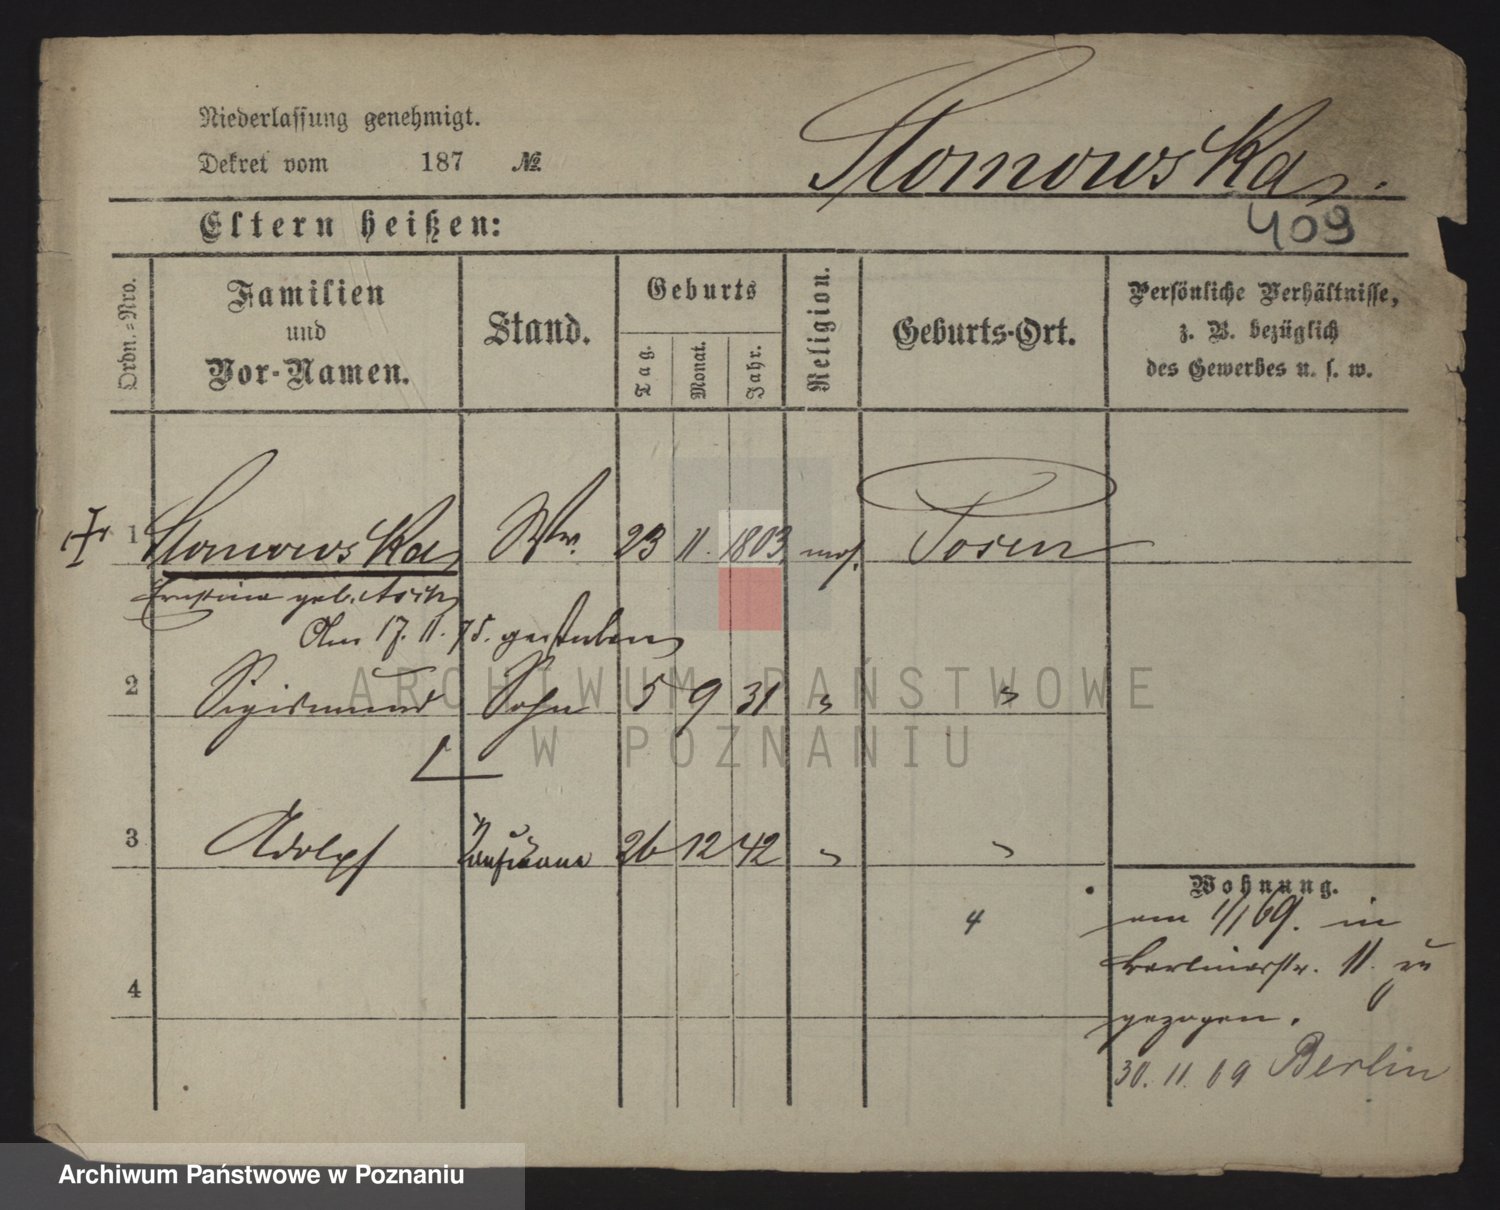 Niederlassung genehmigt.
Dekret vom 187 №
Slomowska.
Eltern heißen:
409
Ordn.-Nro.
Familien
und
Vor-Namen.
Stand.
Geburts
Tag.
Monat.
Jahr.
Religion.
Geburts-Ort.
Persönliche Verhältnisse,
z. B. bezüglich
des Gewerbes u. s. w.
1 Slomowska Ww. 23 11. 1803 mos. Posen
Ernstine geb.
Am 17. 11. 75. gestorben
2 Sigismund Sohn 5 9 31 " "
3 Adolph Kaufmann 26 12 42 " "
Wohnung.
am 1/1 69. in
Berlinerstr. 11. zu
gezogen.
4
4
30. 11. 69 Berlin
ARCHIWUM PAŃSTWOWE
W POZNANIU
Archiwum Państwowe w Poznaniu